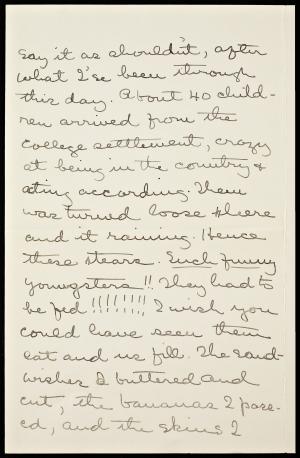 say it as shouldn't, after
what I've been through
this day. About 40 child-
ren arrived from the
college settlement, crazy
at being in the country &
acting according. Them
was turned loose here
and it raining. Hence
these tears. Such funny
youngsters!! They had to
be fed !!!!!!!! I wish you
could have seen them
eat and us fill. The sand-
wiches I buttered and
cut, the bananas I pare-
ed, and the skins I